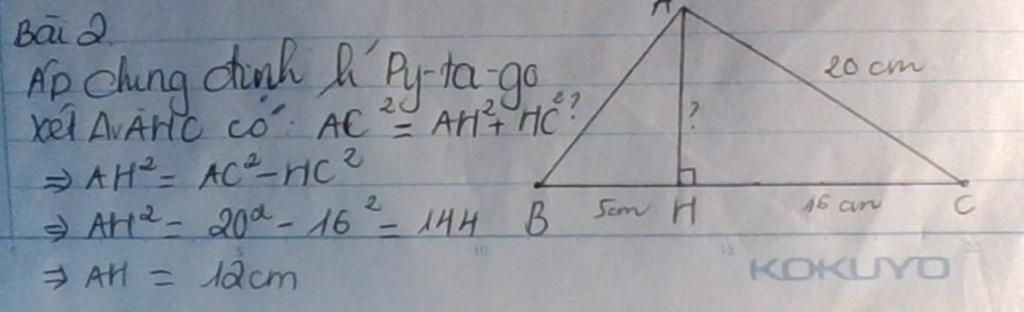 Bài 2
Áp dụng định lí Py-ta-go
xét ΔvAHC có: AC² = AH² + HC²
⇒ AH² = AC² - HC²
⇒ AH² = 20² - 16² = 144
⇒ AH = 12cm
A
20 cm
?
?
B 5cm H 16 cm C
KOKUYO